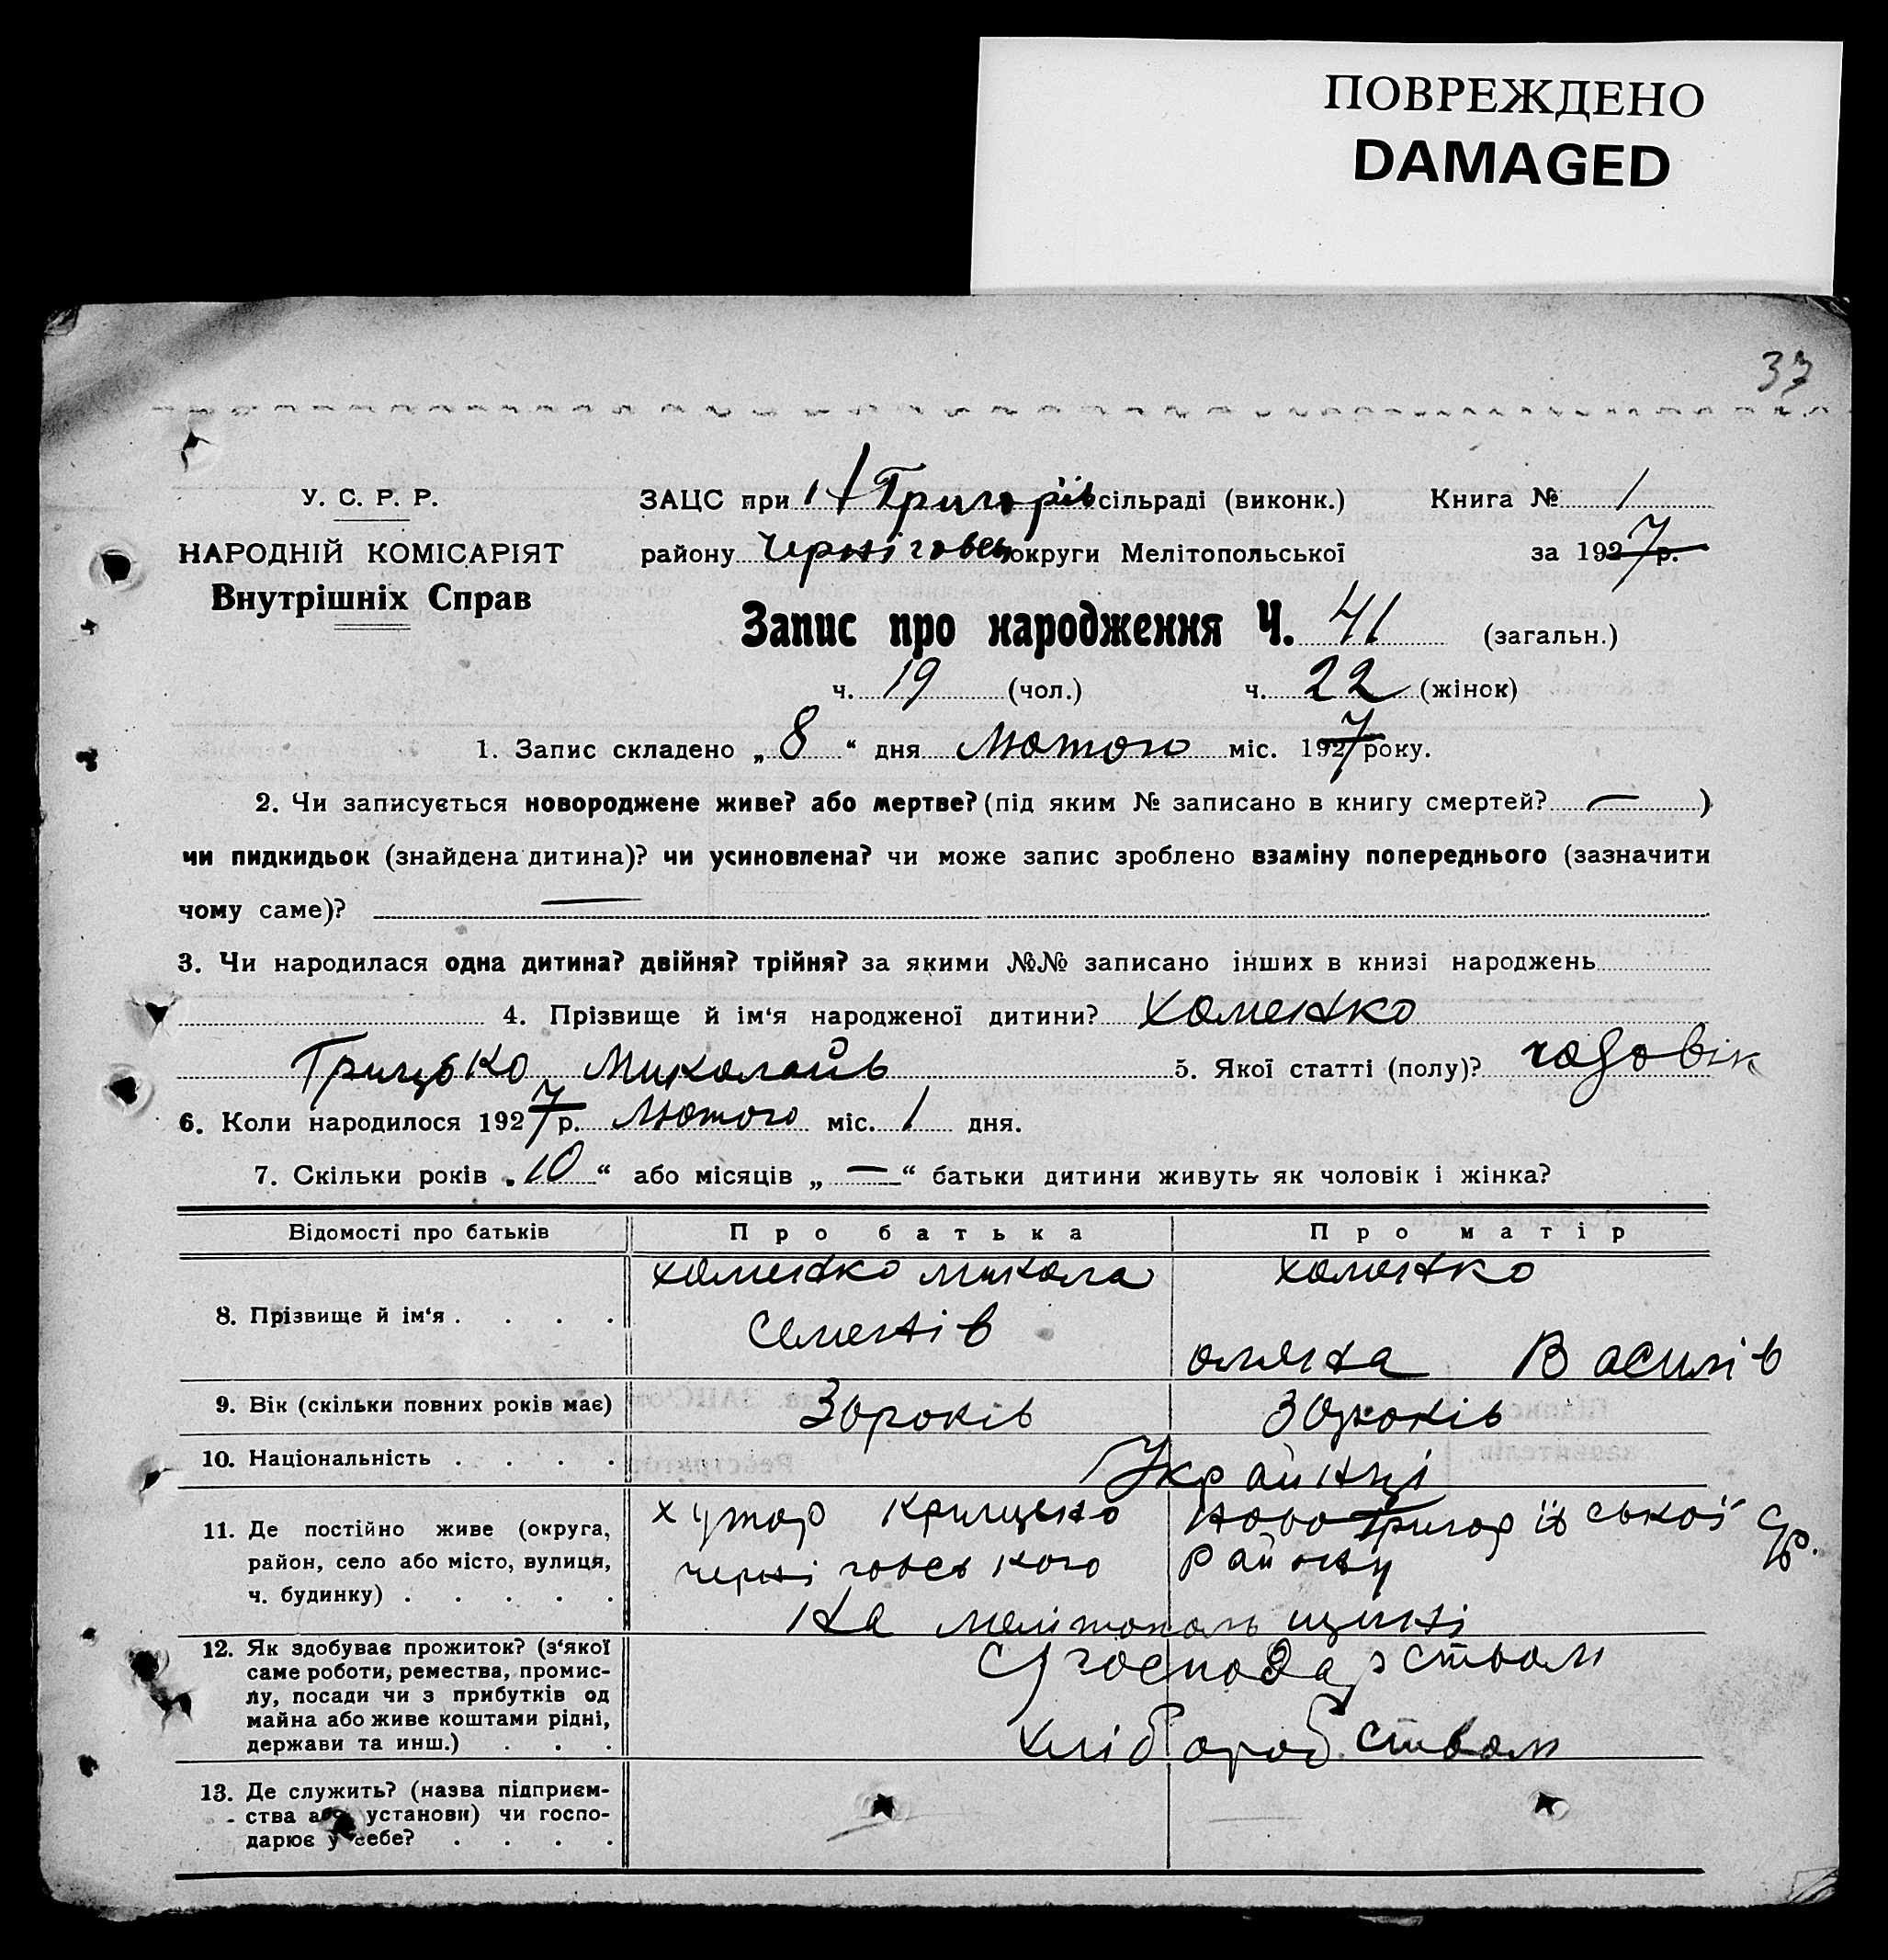 ПОВРЕЖДЕНО
DAMAGED
37
У. С. Р. Р.
НАРОДНІЙ КОМІСАРІЯТ
Внутрішніх Справ
ЗАЦС при Н Григорїв сільраді (виконк.) Книга № 1
району Черніговськ округи Мелітопольської за 1927 р.
Запис про народження Ч. 41 (загальн.)
ч. 19 (чол.) ч. 22 (жінок)
1. Запис складено „ 8 “ дня Лютого міс. 1927 року.
2. Чи записується новороджене живе? або мертве? (під яким № записано в книгу смертей? — )
чи пидкидьок (знайдена дитина)? чи усиновлена? чи може запис зроблено взаміну попереднього (зазначити
чому саме)? —
3. Чи народилася одна дитина? двійня? трійня? за якими №№ записано інших в книзі народжень
4. Прізвище й ім‘я народженої дитини? Хоменко
Грицько Миколаїв 5. Якої статті (полу)? чоловік
6. Коли народилося 1927 р. Лютого міс. 1 дня.
7. Скільки років „ 10 “ або місяців „ — “ батьки дитини живуть як чоловік і жінка?
Відомості про батьків Про батька Про матір
8. Прізвище й ім‘я . . . . Хоменко Микола Хоменко
Семенів
Василів
9. Вік (скільки повних років має) 30 років 30 років
10. Національність . . . . Українці
11. Де постійно живе (округа, хутор Ново Григорївської
район, село або місто, вулиця, Черніговського району
ч. будинку) . . . . .
на Мелітопольщині
12. Як здобуває прожиток? (з‘якої
саме роботи, ремества, промис- господарством
лу, посади чи з прибутків од
майна або живе коштами рідні,
держави та инш.) . . . хліборобством
13. Де служить? (назва підприєм-
ства або установи) чи госпо-
дарює у себе? . . . .